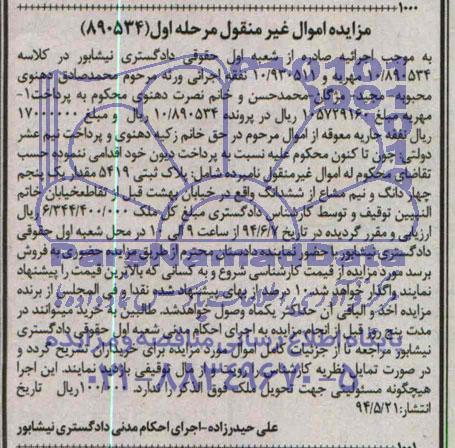 ۱۰۰۰
مزایده اموال غیر منقول مرحله اول(۸۹۰۵۳۴)
به موجب اجرائیه صادره از شعبه اول حقوقی دادگستری نیشابور در کلاسه
۱۰/۸۹۰۵۳۴ مهریه و ۱۰/۹۳۰۵۱۱ نفقه اجرائی ورثه مرحوم محمدصادق دهنوی
محبوبه - مجید- مژگان محمدحسن و خانم نصرت دهنوی محکوم به پرداخت۱-
مهریه مبلغ ۱۰۵۷۲۹۱۶۰ ریال در پرونده ۱۰/۸۹۰۵۳۴ و مبلغ ۱۷۰۰۰۰۰۰
ریال نفقه جاریه معوقه از اموال مرحوم در حق خانم زکیه دهنوی و پرداخت نیم عشر
دولتی: چون تا کنون محکوم علیه نسبت به پرداخت دیون خود اقدامی ننموده حسب
تقاضای محکوم له اموال غیرمنقول نامبرده شامل: پلاک ثبتی ۵۴۱۹ مقدار یک پنجم
چهار دانگ و نیم مشاع از ششدانگ واقع در خیابان بهشت قبل از تقاطعخیابان خاتم
النبیین توقیف و توسط کارشناس دادگستری مبلغ کل ملک ۶/۳۴۴/۴۰۰/۰۰۰ ریال
ارزیابی و مقرر گردیده در تاریخ ۹۴/۶/۷ از ساعت ۹ الی ۱۰ در محل شعبه اول حقوقی
دادگستری نیشابور با حضور نماینده دادستان محترم از طریق مزایده حضوری به فروش
برسد مورد مزایده از قیمت کارشناسی شروع و به کسانی که بالاترین قیمت را پیشنهاد
نمایند واگذار خواهد شد.۱۰ درصد از بهای پیشنهاد شده نقدا و فی المجلس از برنده
مزایده اخذ و الباقی آن حداکثر یکماه وصول خواهدشد. طالبین به خرید میتوانند در
مدت پنج روز قبل از انجام مزایده به اجرای احکام مدنی شعبه اول حقوقی دادگستری
نیشابور مراجعه تا از جزئیات کامل اموال مورد مزایده برای خریداران تشریح گردد و
در صورت تمایل نظریه کارشناس را رویت و از مال توقیفی بازدید نمایند. این اجرا
هیچگونه مسئولیتی جهت تحویل ملک فوق الذکر را ندارد. ریال تاریخ
انتشار:۹۴/۵/۲۱
علی حیدرزاده-اجرای احکام مدنی دادگستری نیشابور
پایگاه اطلاع رسانی مناقصه و مزایده
۰۲۱-۸۸۳۴۹۶۷۰-۵